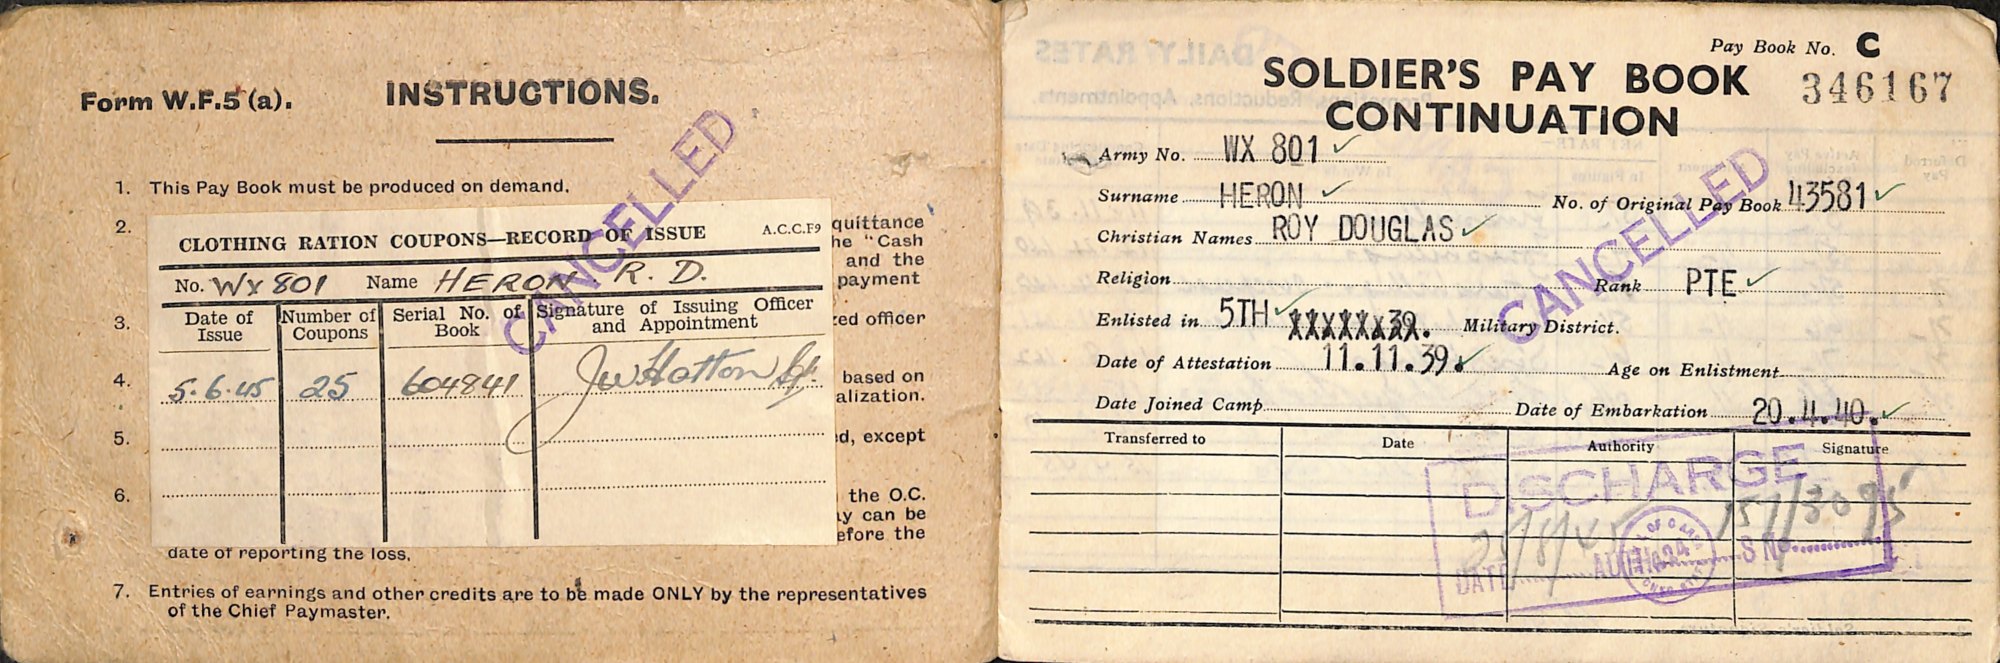 Form W.F.5 (a). INSTRUCTIONS.
1. This Pay Book must be produced on demand.
2. quittance
he "Cash
and the
payment
CLOTHING RATION COUPONS—RECORD OF ISSUE A.C.C.F9
No. WX 801 Name HERON R. D.
Date of Issue Number of Coupons Serial No. of Book Signature of Issuing Officer and Appointment
5.6.45 25 604841 JW Hatton
CANCELLED
3. ed officer
4. based on
alization.
5. d, except
6. the O.C.
y can be
efore the
date of reporting the loss.
7. Entries of earnings and other credits are to be made ONLY by the representatives
of the Chief Paymaster.
Pay Book No. C
346167
SOLDIER'S PAY BOOK
CONTINUATION
Army No. WX 801
Surname HERON No. of Original Pay Book 43581
Christian Names ROY DOUGLAS
Religion Rank PTE
Enlisted in 5TH XXXXXX39. Military District.
Date of Attestation 11.11.39. Age on Enlistment
Date Joined Camp Date of Embarkation 20.4.40.
CANCELLED
Transferred to Date Authority Signature
DISCHARGE
DATE 25/8/45 AUTH 157/3095